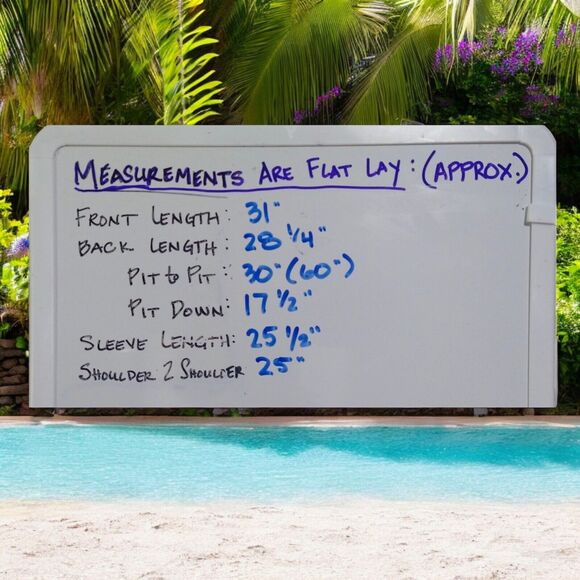 MEASUREMENTS ARE FLAT LAY: (APPROX.)
FRONT LENGTH: 31"
BACK LENGTH: 28 1/4"
PIT to PIT: 30" (60")
PIT DOWN: 17 1/2"
SLEEVE LENGTH: 25 1/2"
SHOULDER 2 SHOULDER 25"